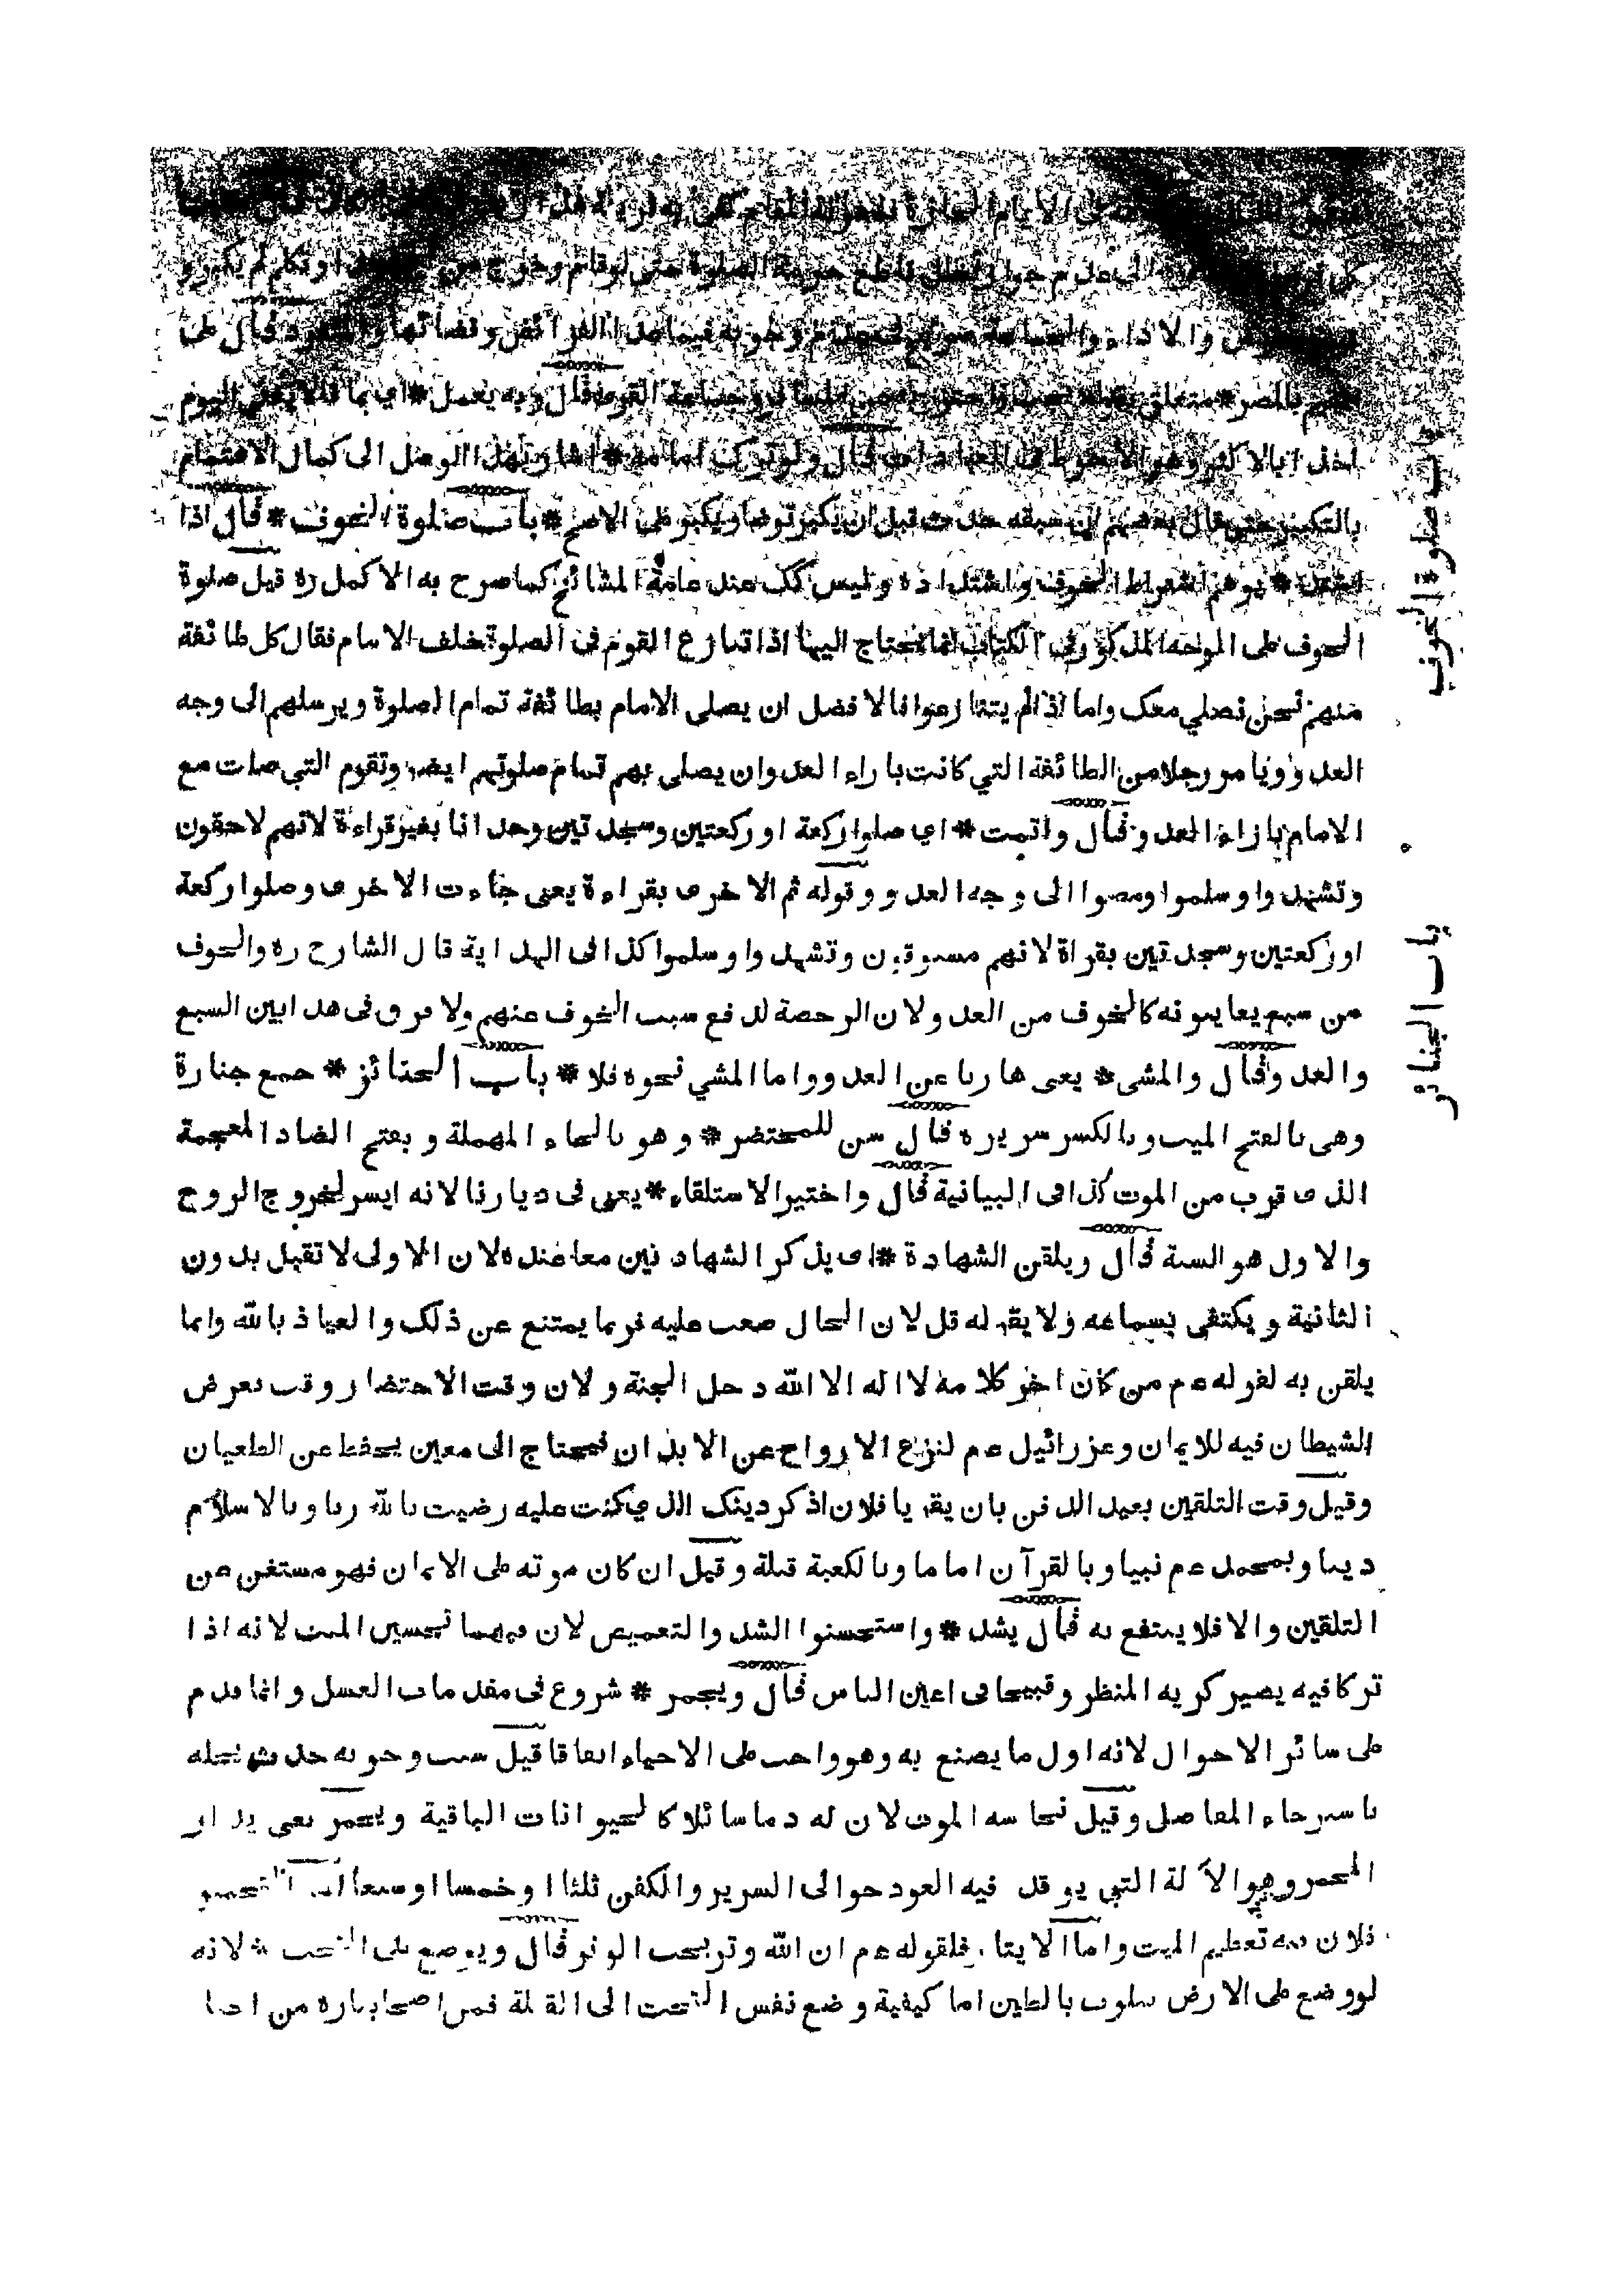 والاداء
وقضائها قال على
بالمصر * متعلق قال وبه يعمل * اى بما اليوم
اخذا بالاكثر وهو الاحوط فى العبادات قال ولو ترك امامه * اشار بهذا الوصل الى كمال الاهتمام
بالتكبير حتى قال بعضهم ان سبقه حدث قبل ان يكبر توضأ ويكبر على الاصح * باب صلوة الخوف * قال اذا
اشتد * يوهم اشتراط الخوف واشتداده وليس كك عند عامة المشائخ كما صرح به الاكمل ره قيل صلوة
الخوف على الوجه المذكور فى الكتاب انما يحتاج اليها اذا تنازع القوم فى الصلوة خلف الامام فقال كل طائفة
منهم نحن نصلي معك واما اذا لم يتنازعوا فالافضل ان يصلى الامام بطائفة تمام الصلوة ويرسلهم الى وجه
العدو ويامر رجلا من الطائفة التي كانت بازاء العدو ان يصلى بهم تمام صلوتهم ايضا وتقوم التي صلت مع
الامام بازاء العدو قال واتمت * اى صلوا ركعة او ركعتين وسجدتين وحدانا بغير قراءة لانهم لاحقون
وتشهدوا وسلموا ومضوا الى وجه العدو وقوله ثم الاخرى بقراءة يعنى جاءت الاخرى وصلوا ركعة
او ركعتين وسجدتين بقراة لانهم مسبوقون وتشهدوا وسلموا كذا فى الهداية قال الشارح ره والخوف
من سبع يعاينونه كالخوف من العدو ولان الرخصة لدفع سبب الخوف عنهم ولا فرق فى هذا بين السبع
والعدو قال والمشى * يعنى هاربا عن العدو واما المشي نحوه فلا * باب الجنائز * جمع جنازة
وهى بالفتح الميت وبالكسر سريره قال سن للمحتضر * وهو بالحاء المهملة وبفتح الضاد المعجمة
الذى قرب من الموت كذا فى البيانية قال واختير الاستلقاء * يعنى فى ديارنا لانه ايسر لخروج الروح
والاول هو السنة قال ويلقن الشهادة * اى يذكر الشهادتين معا عنده لان الاولى لا تقبل بدون
الثانية ويكتفى بسماعه ولا يقر له قل لان الحال صعب عليه فربما يمتنع عن ذلك والعياذ بالله وانما
يلقن به لقوله عم من كان اخر كلامه لا اله الا الله دخل الجنة ولان وقت الاحتضار وقت تعرض
الشيطان فيه للايمان وعزرائيل عم لنزع الارواح عن الابدان فيحتاج الى معين يحفظ عن الطغيان
وقيل وقت التلقين بعيد الدفن بان يقر يا فلان اذكر دينك الذي كنت عليه رضيت بالله ربا وبالاسلام
دينا وبمحمد عم نبيا وبالقرآن اماما وبالكعبة قبلة وقيل ان كان موته على الايمان فهو مستغن عن
التلقين والا فلا ينتفع به قال يشد * واستحسنوا الشد والتغميض لان فيهما تحسين الميت لانه اذا
تركا فيه يصير كريه المنظر وقبيحا فى اعين الناس قال ويجمر * شروع فى مقدمات الغسل وانما قدم
على سائر الاحوال لانه اول ما يصنع به وهو واجب على الاحياء اتفاقا قيل سبب وجوبه حدث يحله
باسترخاء المفاصل وقيل نجاسة الموت لان له دما سائلا كالحيوانات الباقية ويجمر يعنى يدار
المجمر وهو الآلة التي يوقد فيه العود حوالى السرير والكفن ثلثا او خمسا او سبعا اما التجمير
فلان فيه تعظيم الميت واما الايتار فلقوله عم ان الله وتر يحب الوتر قال ويوضع على التخت * لانه
لو وضع على الارض يتلوث بالطين اما كيفية وضع نفس التخت الى القبلة فمن اصحابنا ره من
باب صلوة الخوف
باب الجنائز